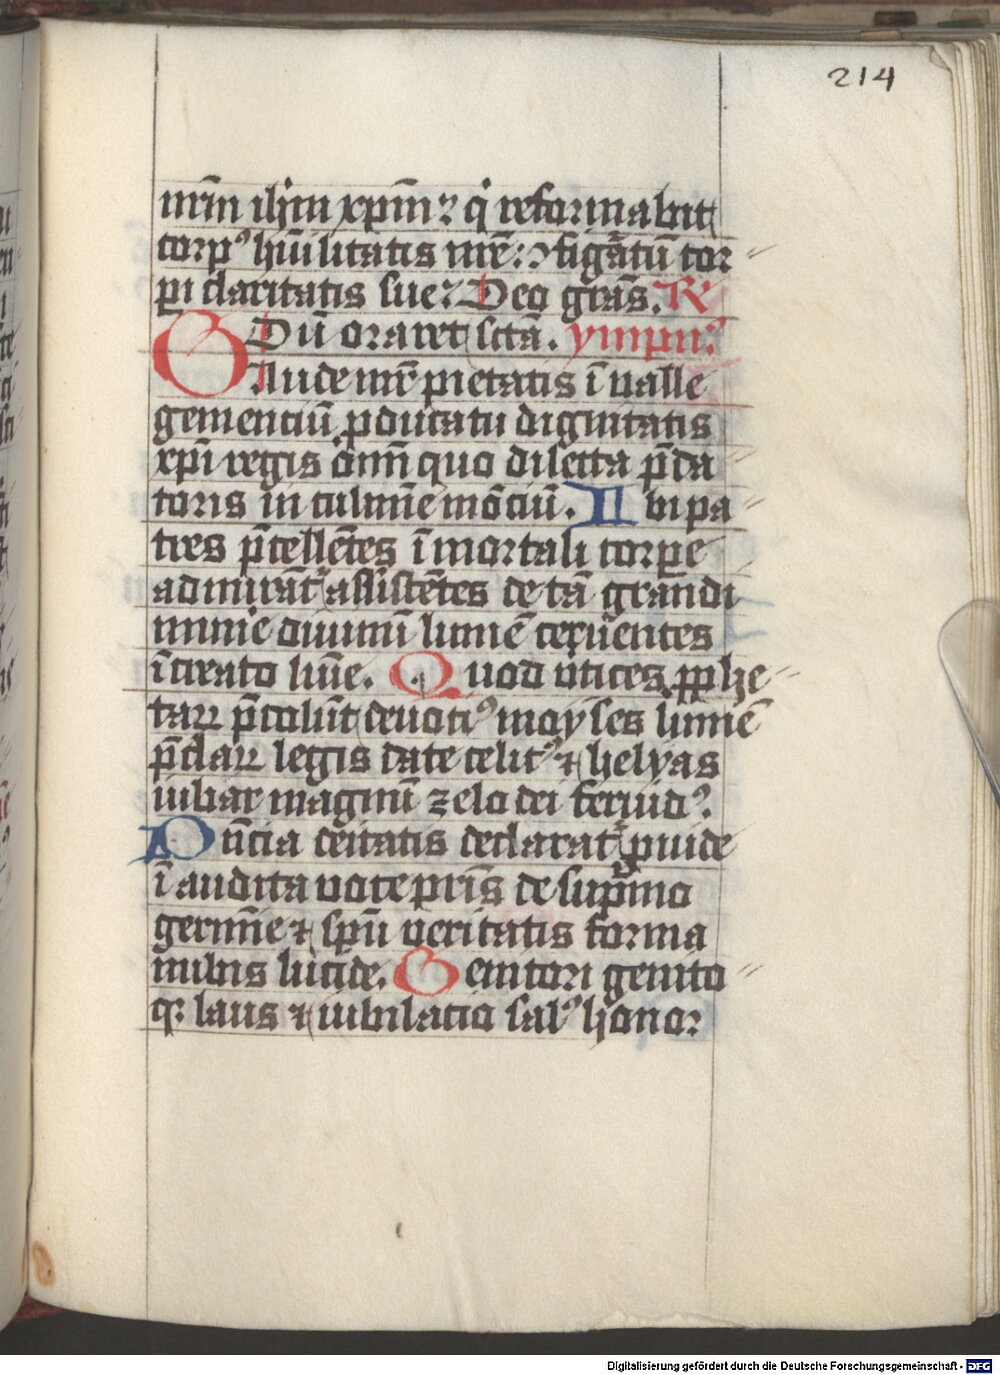 214
nr̄m ihm xp̄m ⁊ qͥ reformabit
corpꝰ hūilitatis nr̄e: ꝯfigᵃtū cor
pi claritatis sue: Deo gr̄as. R
Dū oraret sctā. ympnꝰ
Gaude mr̄ pietatis ī valle
gemenciū pducatu dignitatis
xpi regis om̄i quo dilecta p̄da
toris in culmīe mōciū. U bi pa
tres p̄cellētes ī mortali corpe
admirāt assistētes de tā grandi
munīe diuinū lumē cernentes
ī creato lūīe. Quod vtices pphe
taꝝ p̄colūt deuotiꝰ moyses lumē
p̄claꝝ legis date celitꝰ ⁊ helyas
iubar magnū zelo dei feruidꝰ.
Nūcia dēitatis declarat puide
ī audita voce pr̄is de sup̄mo
germīe ⁊ spū veritatis forma
nubis lucide. Genitori genito
qꝫ laus ⁊ iubilacio salꝰ honor
Digitalisierung gefördert durch die Deutsche Forschungsgemeinschaft - DFG